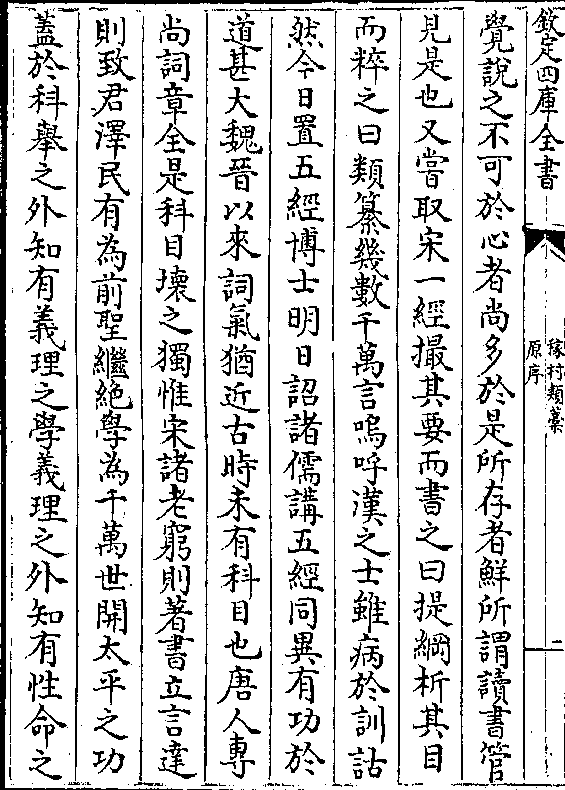 欽定四庫全書
稼村類藁
原序
二
覺說之不可於心者尚多於是所存者鮮所謂讀書管
見是也又嘗取宋一經撮其要而書之曰提綱析其目
而粹之曰類纂幾數千萬言嗚呼漢之士雖病於訓詁
然今日置五經博士明日詔諸儒講五經同異有功於
道甚大魏晉以來詞氣猶近古時未有科目也唐人專
尚詞章全是科目壞之獨惟宋諸老窮則著書立言達
則致君澤民有為前聖繼絶學為千萬世開太平之功
蓋於科舉之外知有義理之學義理之外知有性命之